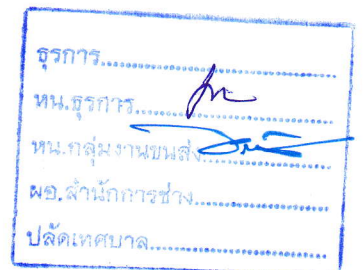 ธุรการ
หน.ธุรการ
หน.กลุ่มงานขนส่ง
ผอ.สำนักการช่าง
ปลัดเทศบาล